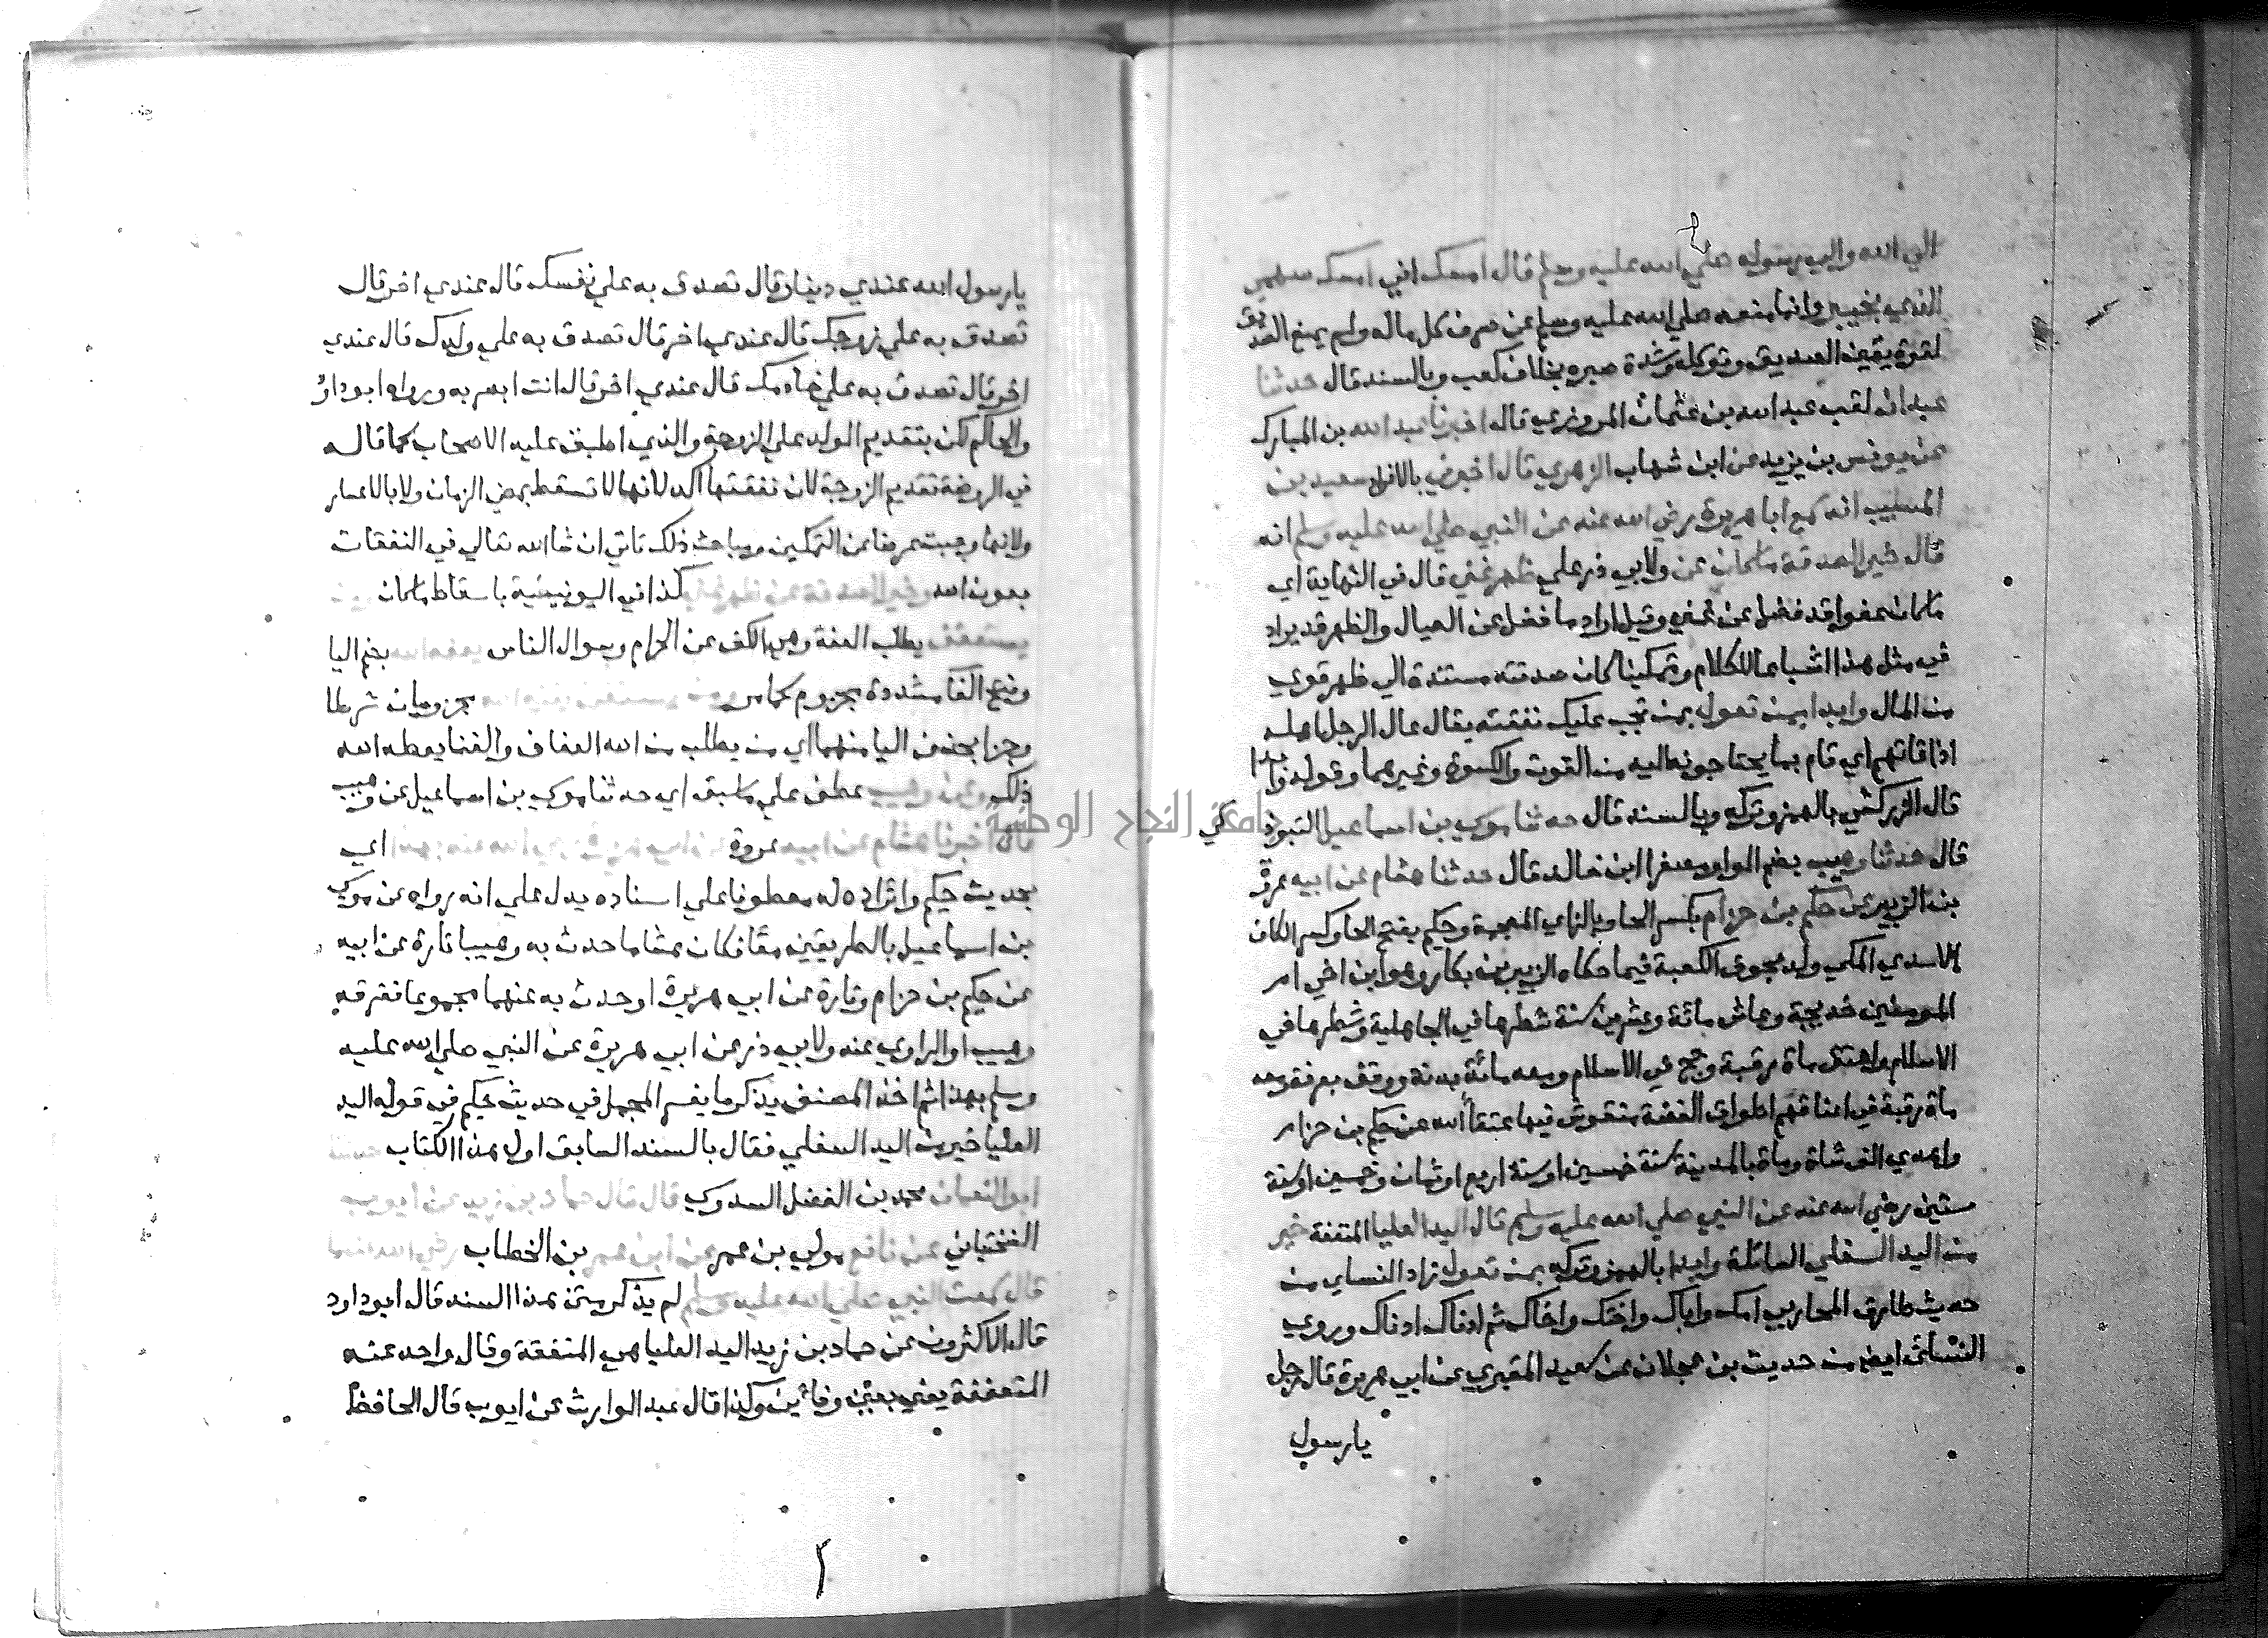 الي الله والي رسوله صلي الله عليه وسلم قال امسك اني امسك سهمي
الذي بخيبر وانما منعه صلي الله عليه وسلم عن صرف كل ماله ولم يمنع الصديق
لقوة يقين الصديق وتوكله وشدة صبره بخلاف كعب وبالسند قال حدثنا
عبدان لقب عبد الله بن عثمان المروزي قال اخبرنا عبد الله بن المبارك
عن يونس بن يزيد عن ابن شهاب الزهري قال اخبرني بالافراد سعيد بن
المسيب انه سمع ابا هريرة رضي الله عنه عن النبي صلي الله عليه وسلم انه
قال خير الصدقة ماكان عن ولابي ذر علي ظهر غني قال في النهاية اي
ماكان عفوا قد فضل عن غني وقيل اراد ما فضل عن العيال والظهر قد يزاد
في مثل هذا اشباعا للكلام وتمكينا كان صدقته مستندة الي ظهر قوي
من المال وابدا بمن تعول بمن تجب عليك نفقته يقال عال الرجل اهله
اذا قاتهم اي قام بما يحتاجون اليه من القوت والكسوة وغيرهما وقوله وابدا
قال الزركشي بالهمز وتركه وبالسند قال حدثنا موسي بن اسماعيل التبوذكي
قال حدثنا وهيب بضم الواو مصغرا ابن خالد قال حدثنا هشام عن ابيه عروة
بن الزبير عن حكيم بن حزام بكسر الحا وبالزاي المعجمة وحكيم بفتح الحا وكسر الكاف
الاسدي المكي ولد بجوف الكعبة فيما حكاه الزبير بن بكار وهو ابن اخي ام
المومنين خديجة وعاش مائة وعشرين سنة شطرها في الجاهلية وشطرها في
الاسلام واعتق ماة رقبة وحج في الاسلام ومعه مائة بدنة ووقف بعرفة ومعه
ماة رقبة في اعناقهم اطواق الفضة منقوش فيها عتقا الله عن حكيم بن حزام
واهدي الف شاة ومات بالمدينة سنة خمسين او سنة اربع او ثمان وخمسين او سنة
ستين رضي الله عنه عن النبي صلي الله عليه وسلم قال اليد العليا المنفقة خير
من اليد السفلي السائلة وابدا بالهمز وتركه بمن تعول زاد النساي من
حديث طارق المحاربي امك واباك واختك واخاك ثم ادناك ادناك وروي
النسائ ايضا من حديث بن عجلان عن سعيد المقبري عن ابي هريرة قال رجل
يارسول
يارسول الله عندي دينار قال تصدق به علي نفسك قال عندي اخر قال
تصدق به علي زوجك قال عندي اخر قال تصدق به علي ولدك قال عندي
اخر قال تصدق به علي خادمك قال عندي اخر قال انت ابصر به ورواه ابوداود
والحاكم لكن بتقديم الولد علي الزوجة والذي اطبق عليه الاصحاب كما قاله
في الروضة تقديم الزوجة لان نفقتها اكد لانها لا تسقط بمضي الزمان ولا بالاعسار
ولانها وجبت عوضا عن التمكين ومباحث ذلك تاتي ان شا الله تعالي في النفقات
بعون الله كذا في اليونينية باسقاط ماكان
يستعفف يطلب العفة وهي الكف عن الحرام وسوال الناس يعفه الله بضم اليا
وفتح الفا مشددة مجزوم كما مر مجزومان شرطا
وجزا بحذف اليا منهما اي من يطلب من الله العفاف والغنا يعطه الله
ذلك وعن وهيب عطف علي ماسبق اي حدثنا موسي بن اسماعيل عن وهيب
قال اخبرنا هشام عن ابيه عروة اي
بحديث حكيم وايراده له معطوفا علي اسناده يدل علي انه رواه عن موسي
بن اسماعيل بالطريقين معا فكان هشاما حدث به وهيبا تارة عن ابيه
عن حكيم بن حزام وتارة عن ابي هريرة او حدث به عنهما مجموعا ففرقه
وهيب او الراوي عنه ولابي ذر عن ابي هريرة عن النبي صلي الله عليه
وسلم بهذا ثم اخذ المصنف يذكر ما يفسر المجمل في حديث حكيم في قوله اليد
العليا خير من اليد السفلي فقال بالسند السابق اول هذا الكتاب حدثنا
ابو النعمان محمد بن الفضل السدوسي قال
السختياني عن نافع مولي بن عمر عن ابن عمر بن الخطاب
قال سمعت النبي صلي الله عليه وسلم لم يذكر متن هذا السند قال ابوداود
قال الاكثرون عن حماد بن زيد اليد العليا هي المنفقة وقال واحد عنه
المتعففة يعني بعين وفائين وكذا قال عبد الوارث عن ايوب قال الحافظ
جامعة النجاح الوطنية